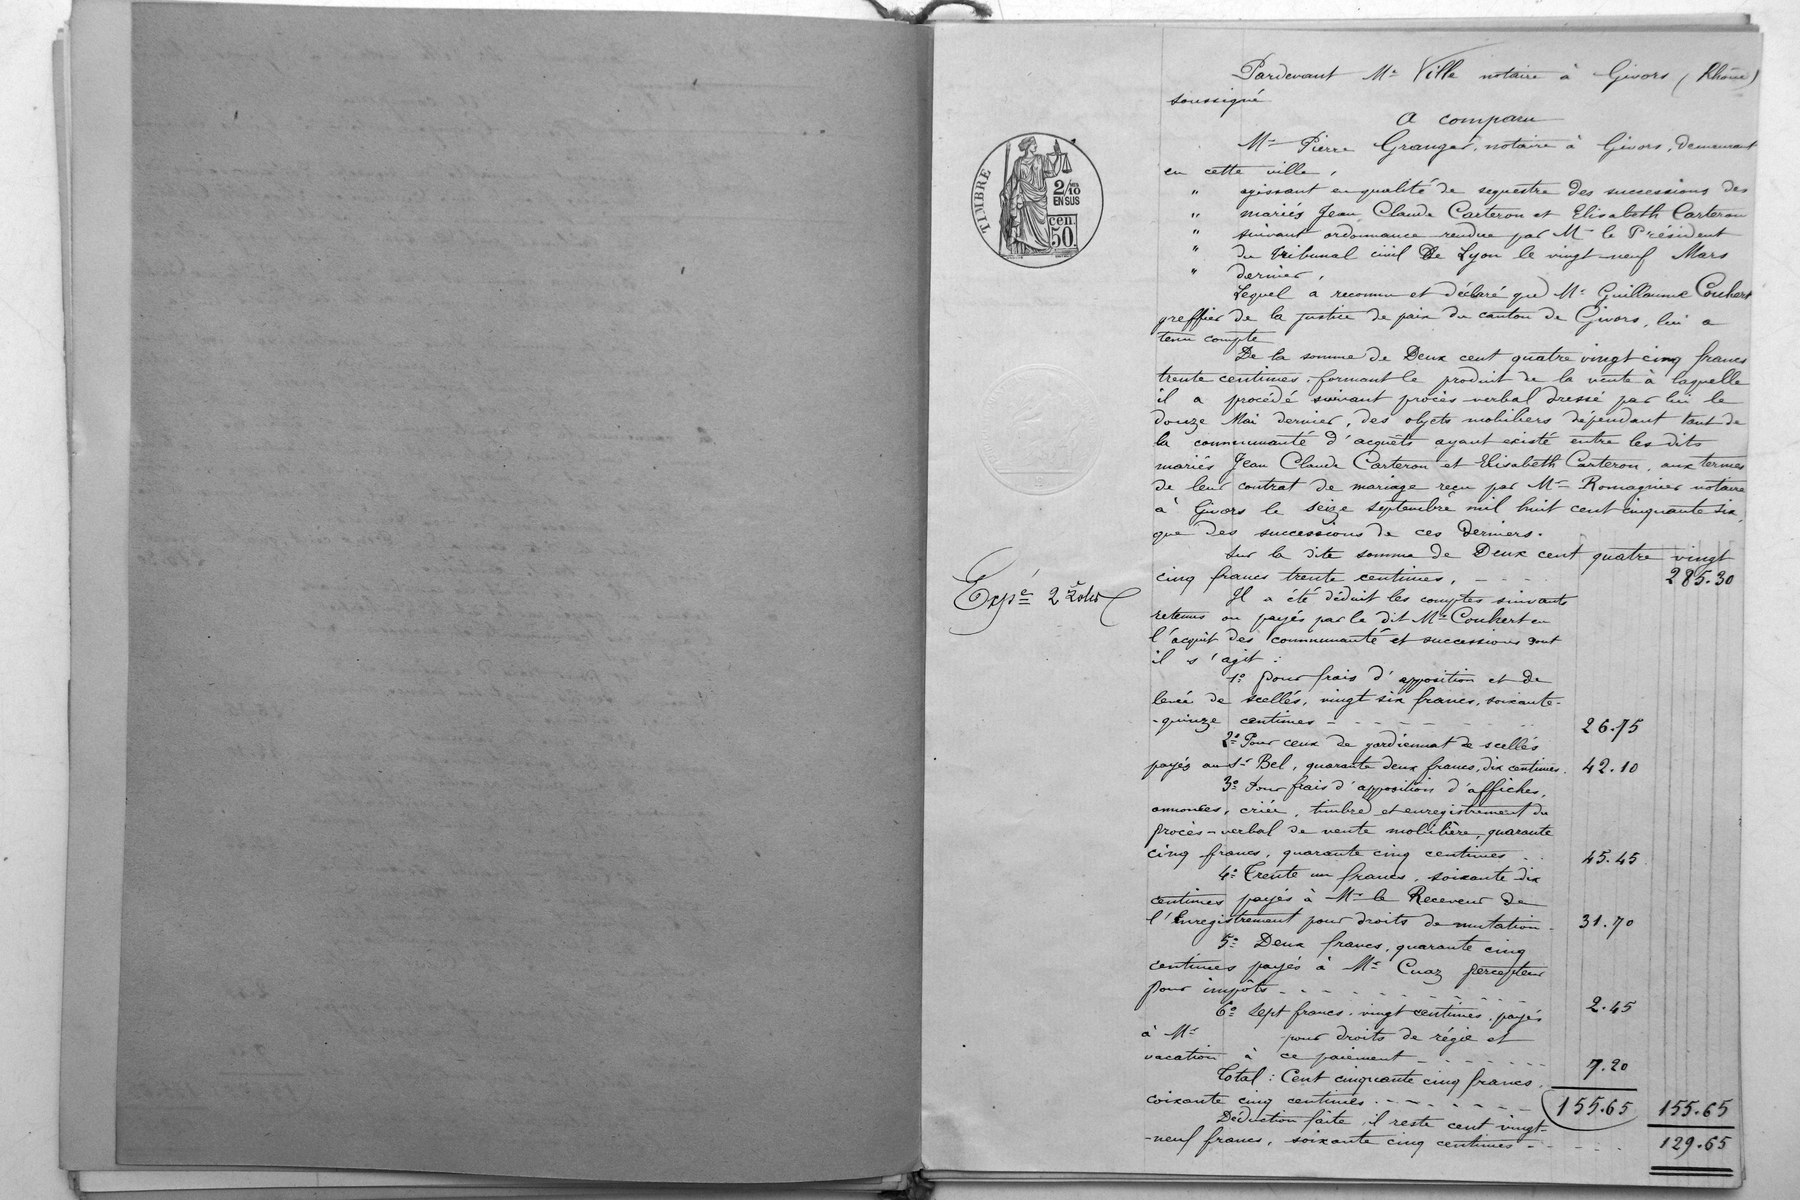 Pardevant Me Ville notaire à Givors (Rhône)
soussigné
A comparu
Me Pierre Granger, notaire à Givors, demeurant
en cette ville,
" agissant en qualité de sequestre des successions des
" mariés Jean Claude Carteron et Elisabeth Carteron
" suivant ordonnance rendue par Mr le Président
" du Tribunal civil De Lyon le vingt-neuf Mars
" dernier,
Lequel a reconnu et déclaré que Me Guillaume Couhert
greffier de la justice de paix du canton de Givors, lui a
tenu compte
De la somme de Deux cent quatre vingt cinq francs
trente centimes, formant le produit de la vente à laquelle
il a procédé suivant procès-verbal dressé par lui le
douze Mai dernier, des objets mobiliers dépendant tant de
la communauté d'acquêts ayant existé entre les dits
mariés Jean Claude Carteron et Elisabeth Carteron, aux termes
de leur contrat de mariage reçu par Me Romagnier notaire
à Givors le seize septembre mil huit cent cinquante six,
que des successions de ces Derniers.
Sur la dite somme de Deux cent quatre vingt
cinq francs trente centimes, 285.30
Il a été déduit les comptes suivants
retenus ou payés par le dit Me Couhert en
l'acquit des communauté et successions dont
il s'agit :
1º pour frais d'apposition et de
levée de scellés, vingt six francs, soixante-
-quinze centimes 26.75
2º Pour ceux de gardiennat de scellés
payés au Sr Bel, quarante deux francs, dix centimes. 42.10
3º Pour frais d'apposition d'affiches,
annonces, criée, timbre et enregistrement du
procès-verbal de vente mobilière, quarante
cinq francs, quarante cinq centimes 45.45
4º Trente un francs, soixante dix
centimes payés à Mr le Receveur de
l'Enregistrement pour droits de mutation. 31.70
5º Deux francs, quarante cinq
centimes payés à Mr Cuaz percepteur
pour impôts 2.45
6º Sept francs, vingt centimes, payés
à Me pour droits de régie et
vacation à ce paiement 7.20
Total : Cent cinquante cinq francs,
soixante cinq centimes. 155.65 155.65
Déduction faite, il reste cent vingt-
-neuf francs, soixante cinq centimes 129.65
TIMBRE
2/10
EN SUS
cen.
50.
Expé 2 Rôles